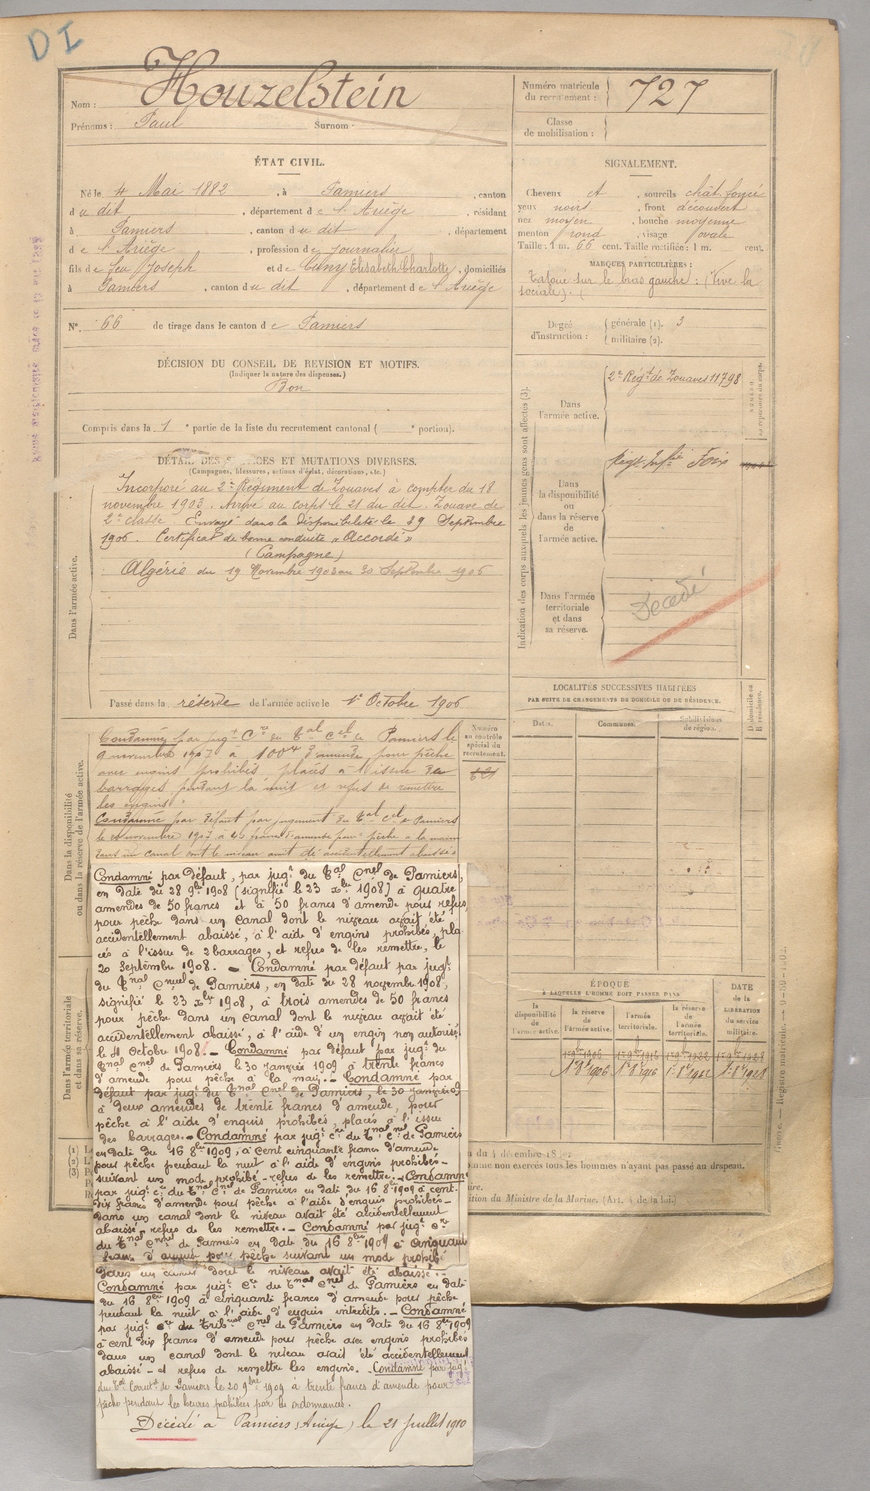 DI
Nom : Houzelstein
Prénoms : Paul Surnom
Numéro matricule du recrutement : 727
Classe de mobilisation :
ÉTAT CIVIL.
Né le 4 Mai 1882, à Pamiers, canton
du dit, département de l'Ariège, résidant
à Pamiers, canton du dit, département
de l'Ariège, profession de journalier
fils de feu Joseph et de Cuny Elisabeth Charlotte, domiciliés
à Pamiers, canton du dit, département de l'Ariège
N° 66 de tirage dans le canton de Pamiers
SIGNALEMENT.
Cheveux et, sourcils chât. foncé
yeux noirs, front découvert
nez moyen, bouche moyenne
menton rond, visage ovale
Taille : 1 m. 66 cent. Taille rectifiée : 1 m. cent.
MARQUES PARTICULIÈRES :
Tatoué sur le bras gauche : (Vive la
sociale).
Degré d'instruction : générale (1). 3
militaire (2).
DÉCISION DU CONSEIL DE REVISION ET MOTIFS.
(Indiquer la nature des dispenses.)
Bon
Compris dans la 1e partie de la liste du recrutement cantonal ( e portion).
DÉTAIL DES ET MUTATIONS DIVERSES.
(Campagnes, blessures, actions d'éclat, décorations, etc.)
Dans l'armée active.
Incorporé au 2e Régiment de Zouaves à compter du 18
novembre 1903. Arrivé au corps le 21 du dit. Zouave de
2e classe. Envoyé dans la Disponibilité le 29 Septembre
1906. Certificat de bonne conduite "Accordé"
(Campagne)
Algérie du 19 Novembre 1903 au 30 Septembre 1906
Passé dans la réserve de l'armée active le 1er Octobre 1906
Indication des corps auxquels les jeunes gens sont affectés (3).
Dans l'armée active.
2e Régt de Zouaves 11798
Dans la disponibilité ou dans la réserve de l'armée active.
Régt Infie Foix
Dans l'armée territoriale et dans sa réserve.
Décédé
LOCALITÉS SUCCESSIVES HABITÉES
PAR SUITE DE CHANGEMENTS DE DOMICILE OU DE RÉSIDENCE.
Dates. Communes. Subdivisions de région. D. domicile ou R. résidence.
Numéro au contrôle spécial du recrutement.
Dans la disponibilité ou dans la réserve de l'armée active.
Condamné par jugt Cre du Tal Cel de Pamiers le
9 novembre 1907 à 100f d'amende pour pêche
avec engins prohibés placés à l'issue de
barrages pendant la nuit et refus de remettre
les engins
Condamné par défaut par jugement du Tal Cel de Pamiers
le novembre 1907 à francs d'amende pour pêche à la main
dans un canal dont le niveau avait été accidentellement abaissé
Condamné par défaut, par jugt du Tal Cnel de Pamiers,
en date du 28 9bre 1908 (signifié le 23 xbre 1908) à quatre
amendes de 50 francs et à 50 francs d'amende pour refus,
pour pêche dans un canal dont le niveau avait été
accidentellement abaissé, à l'aide d'engins prohibés, pla-
cés à l'issue de 2 barrages, et refus de les remettre, le
20 Septembre 1908. — Condamné par défaut par jugt
du Tnal Cnnel de Pamiers, en date du 28 novembre 1908,
signifié le 23 xbre 1908, à trois amendes de 50 francs
pour pêche dans un canal dont le niveau avait été
accidentellement abaissé, à l'aide d'un engin non autorisé
le 11 Octobre 1908. — Condamné par défaut par jugt du
Tnal Cnel de Pamiers le 30 janvier 1909 à trente francs
d'amende pour pêche à la main. — Condamné par
défaut par jugt du Tnal Cnel de Pamiers, le 30 janvier 09
à deux amendes de trente francs d'amende, pour
pêche à l'aide d'engins prohibés, placés à l'issue
des barrages. — Condamné par jugt cre du Tnal cel de Pamiers
en date du 16 8bre 1909, à cent cinquante francs d'amende
pour pêche pendant la nuit à l'aide d'engins prohibés —
suivant un mode prohibé — refus de les remettre. — Condamné
par jugt cre du Tnal cel de Pamiers en date du 16 8bre 1909 à cent-
dix francs d'amende pour pêche à l'aide d'engins prohibés —
dans un canal dont le niveau avait été accidentellement
abaissé — refus de les remettre. — Condamné par jugt cre
du Tnal Cnel de Pamiers en date du 16 8bre 1909 à cinquante
francs d'amende pour pêche suivant un mode prohibé
dans un canal dont le niveau avait été abaissé. —
Condamné par jugt Cre du Tnal Cnel de Pamiers en date
du 16 8bre 1909 à cinquante francs d'amende pour pêche
pendant la nuit à l'aide d'engins interdits. — Condamné
par jugt cre du Tribnal Cnel de Pamiers en date du 16 8bre 1909
à cent dix francs d'amende pour pêche avec engins prohibés
dans un canal dont le niveau avait été accidentellement
abaissé — et refus de remettre les engins. Condamné par jugt
du Tal Corrnel de Pamiers le 20 9bre 1909 à trente francs d'amende pour
pêche pendant les heures prohibées par les ordonnances.
Décédé à Pamiers (Ariège) le 21 Juillet 1910
Dans l'armée territoriale et dans sa réserve.
ÉPOQUE
À LAQUELLE L'HOMME DOIT PASSER DANS
la disponibilité de l'armée active. la réserve de l'armée active. l'armée territoriale. la réserve de l'armée territoriale.
DATE de la LIBÉRATION du service militaire.
1er 9bre 1906 1er 9bre 1916 1er 9bre 1922 1er 9bre 1928
1er 8e 1906 1er 8e 1916 1er 8e 1922 1er 8e 1928
(1)
(2)
(3)
du 4 décembre 18
non exercés tous les hommes n'ayant pas passé au drapeau.
du Ministre de la Marine. (Art. 4 de la loi.)